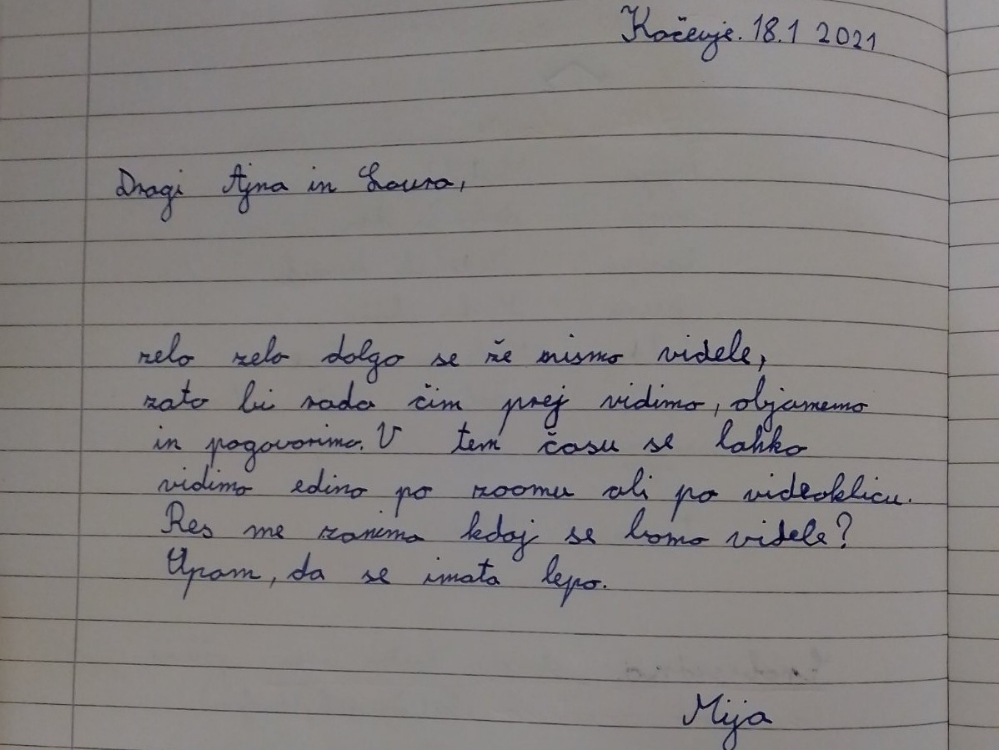 Kočevje. 18.1 2021
Dragi Ajna in Laura,
zelo zelo dolgo se že nismo videle,
zato bi rada čim prej vidimo, objamemo
in pogovorimo. V tem času se lahko
vidimo edino po zoomu ali po videoklicu.
Res me zanima kdaj se bomo videle?
Upam, da se imata lepo.
Mija